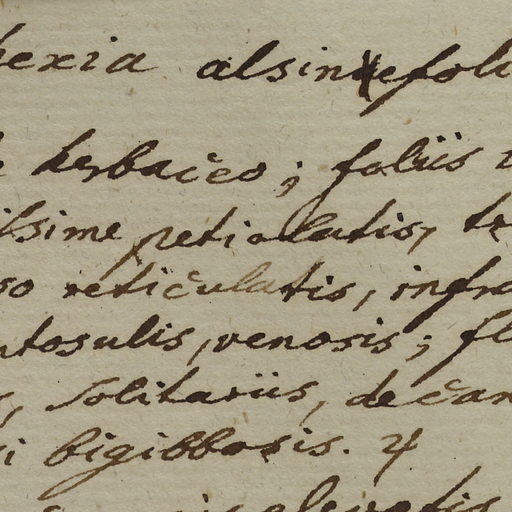 hexia alsinefoli
herbaceo; foliis
ilsime petiolatis,
so reticulatis, infra
ntosulis, venosis; fl
solitariis, decan
i bigibbosis. ♃
elevatis